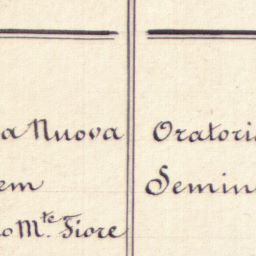 a Nuova
Oratori
em
Semin
o M.te Fiore